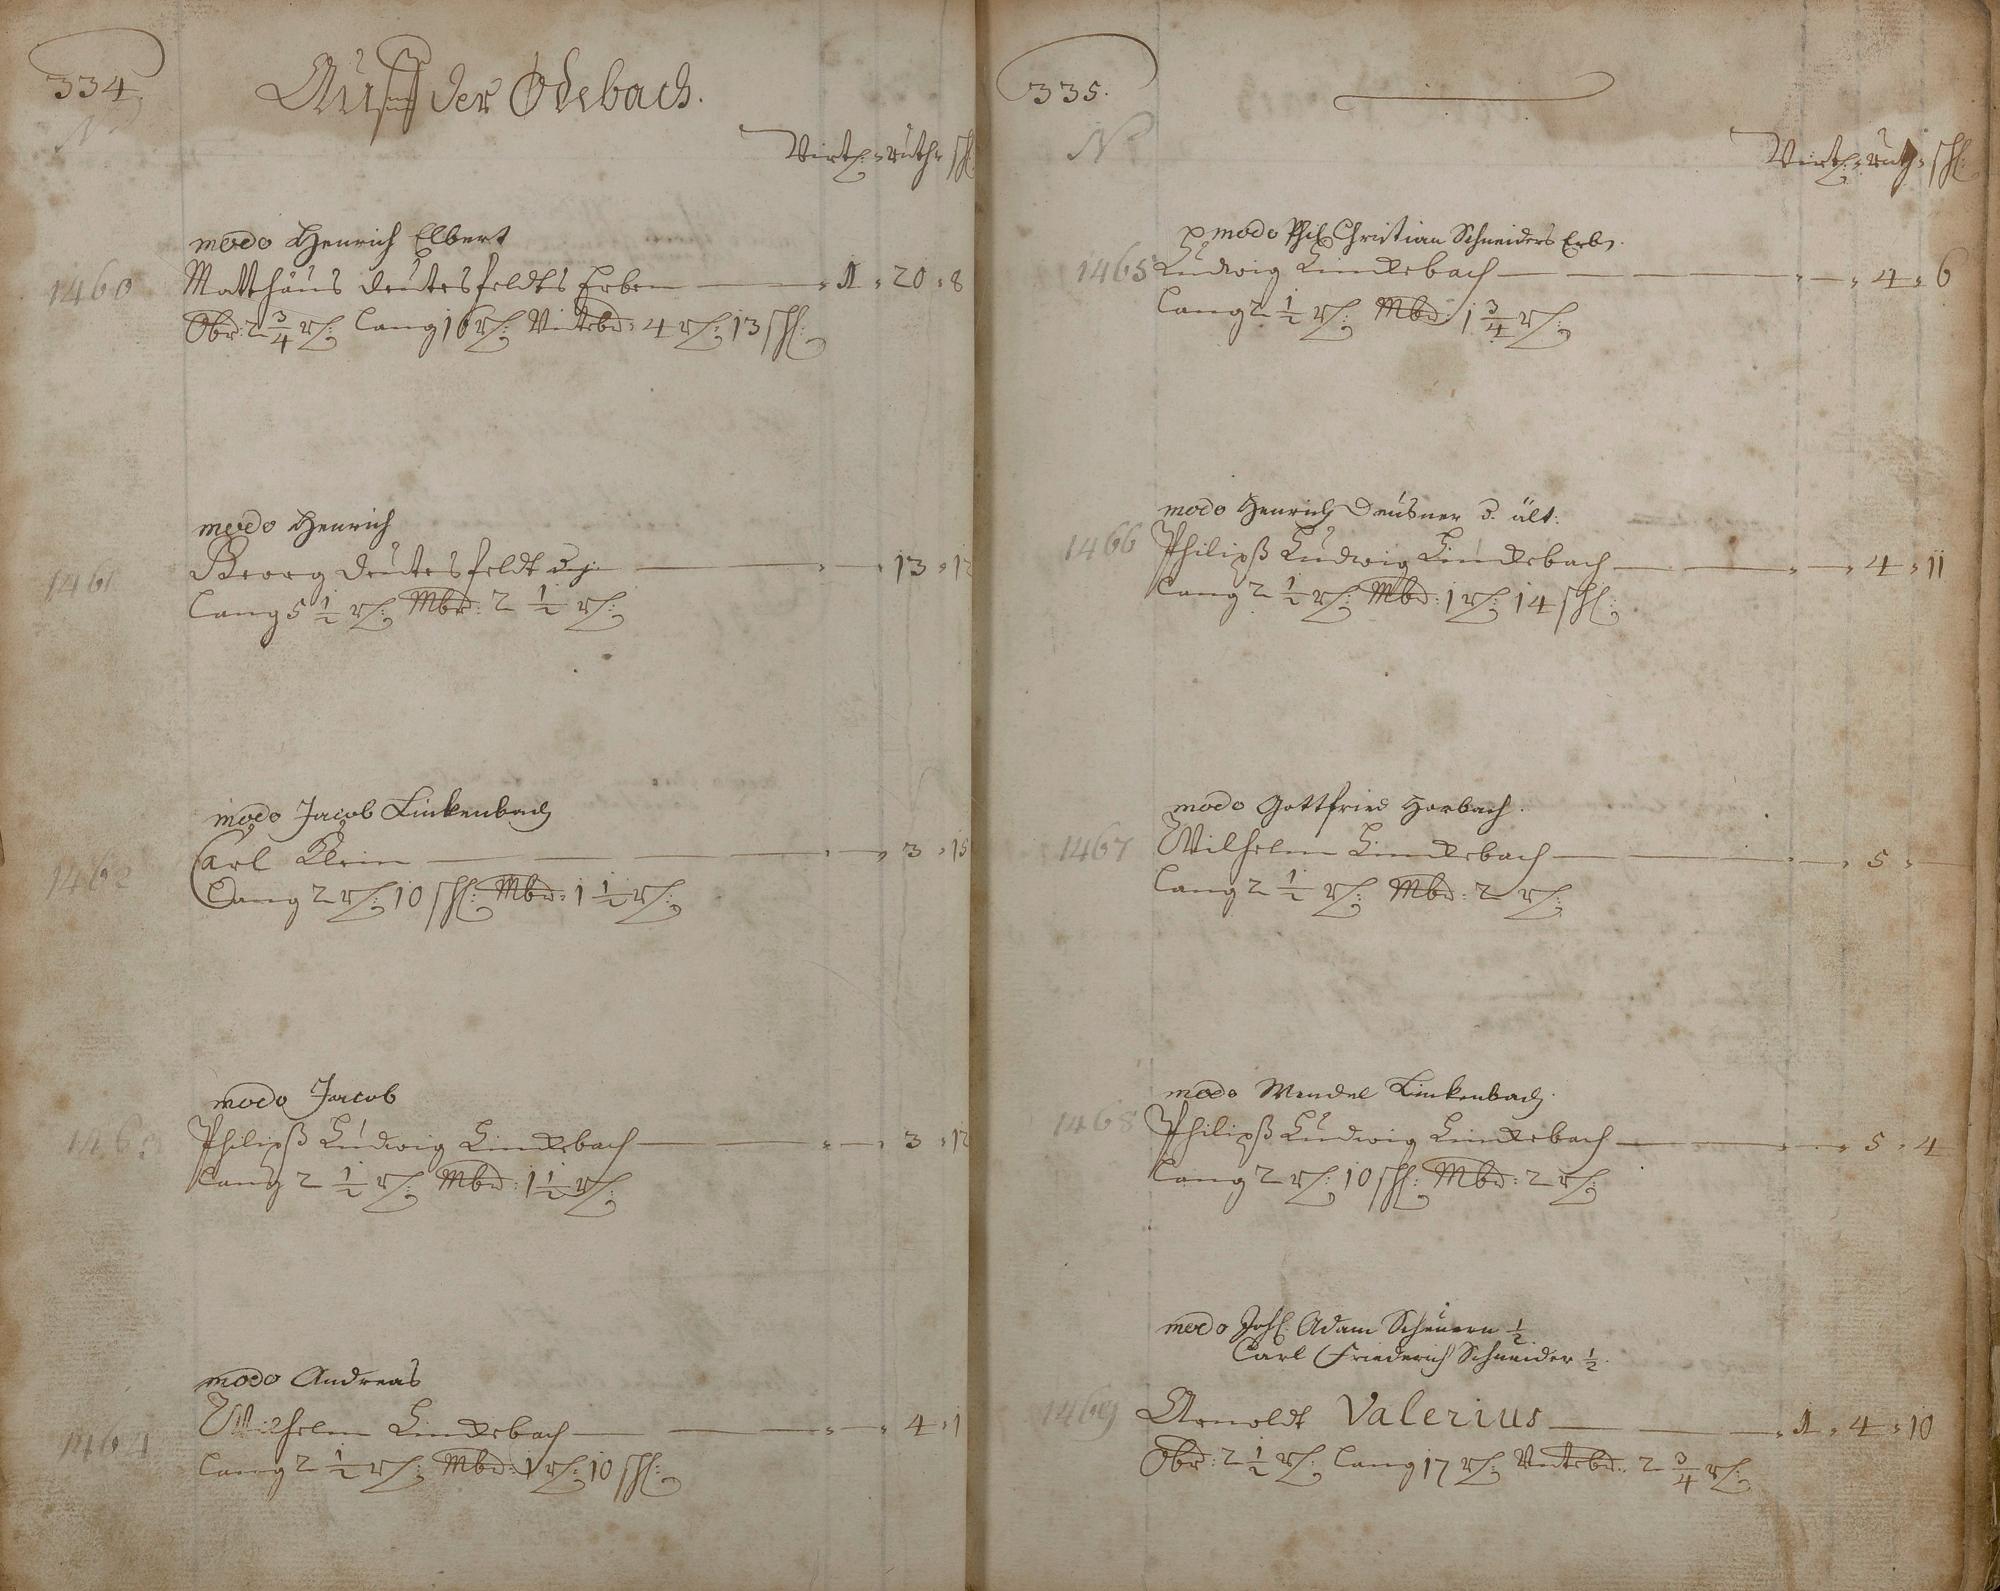 334.
Auff der Odebach.
No
Virtl: ruth: schl
modo Henrich Elbert
1460 Matthäus deutesfeldts Erben — 1 20 8
Obr: 2 3/4 r: lang 16 r: Untebr: 4 r: 13 schl:
modo Henrich
1461 Georg deutesfeldt — 13 12
lang 5 1/2 r: Mbr: 2 1/2 r:
modo Jacob Linkenbach
1462 Carl Klein — 3 15
Lang 2 r: 10 schl: Mbr: 1 1/2 r:
modo Jacob
1463 Philipß Ludwig Linckebach — 3 12
lang 2 1/2 r: Mbr: 1 1/2 r:
modo Andreas
1464 Wilhelm Linckebach — 4 1
lang 2 1/2 r: Mbr: 1 r: 10 schl:
335.
No
Virtl: ruth: schl:
modo Phil Christian Schneiders Erb.
1465 Ludwig Linckebach — 4 6
lang 2 1/2 r: Mbr: 1 3/4 r:
modo Henrich Deusner d. ält:
1466 Philipß Ludwig Linckebach — 4 11
lang 2 1/2 r: Mbr: 1 r: 14 schl:
modo Gottfried Horbach.
1467 Wilhelm Linckebach — 5 —
lang 2 1/2 r: Mbr: 2 r:
modo Wendel Linkenbach.
1468 Philipß Ludwig Linckebach — 5 4
lang 2 r: 10 schl: Mbr: 2 r:
modo Joh: Adam Scheuern 1/2
Carl Friederich Schneider 1/2.
1469 Arnoldt Valerius — 1 4 10
Obr: 2 1/2 r: lang 17 r: Untebr: 2 3/4 r: